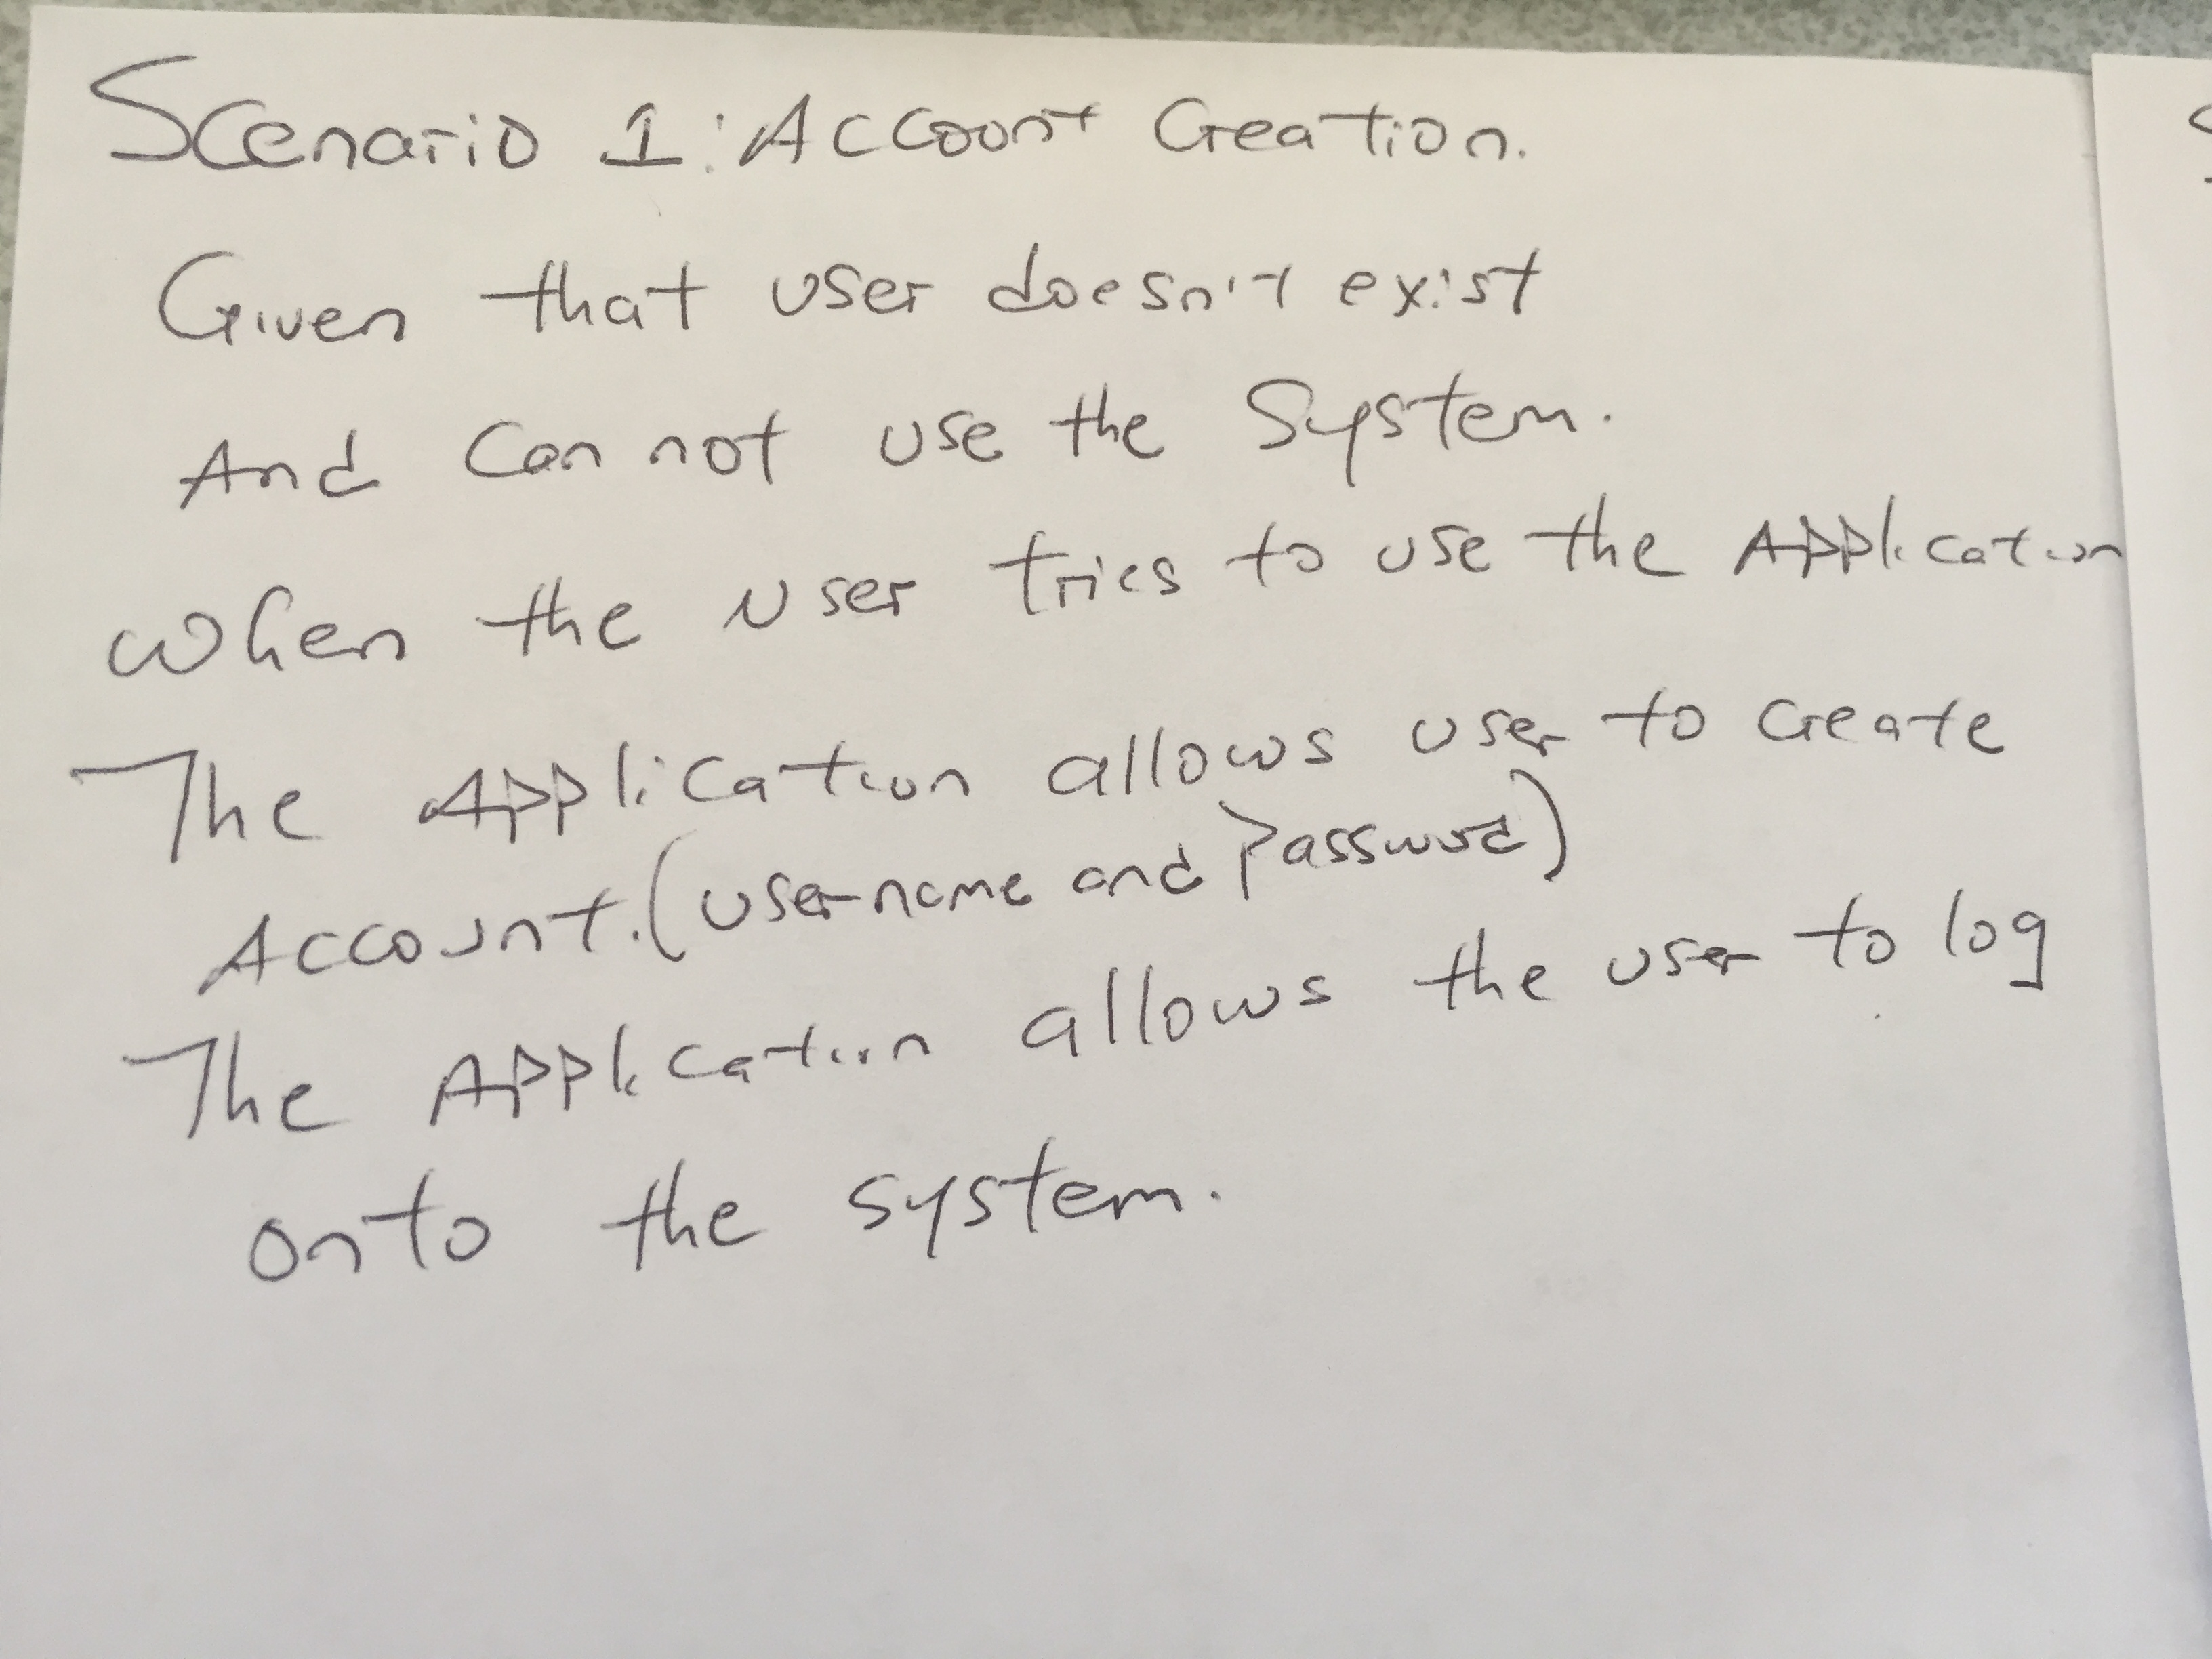 Scenario 1: Account Creation.
Given that user doesn't exist
And Can not use the System.
when the user tries to use the Application
The Application allows user to create
Account. (username and Password)
The Application allows the user to log
onto the system.